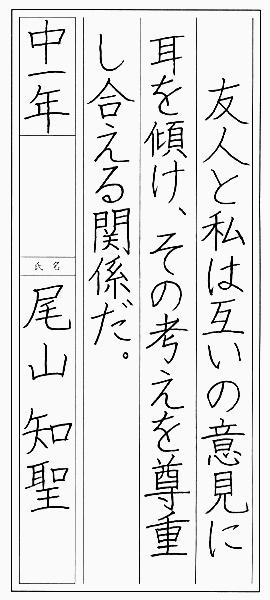 友人と私は互いの意見に
耳を傾け、その考えを尊重
し合える関係だ。
中一年
氏名
尾山 知聖